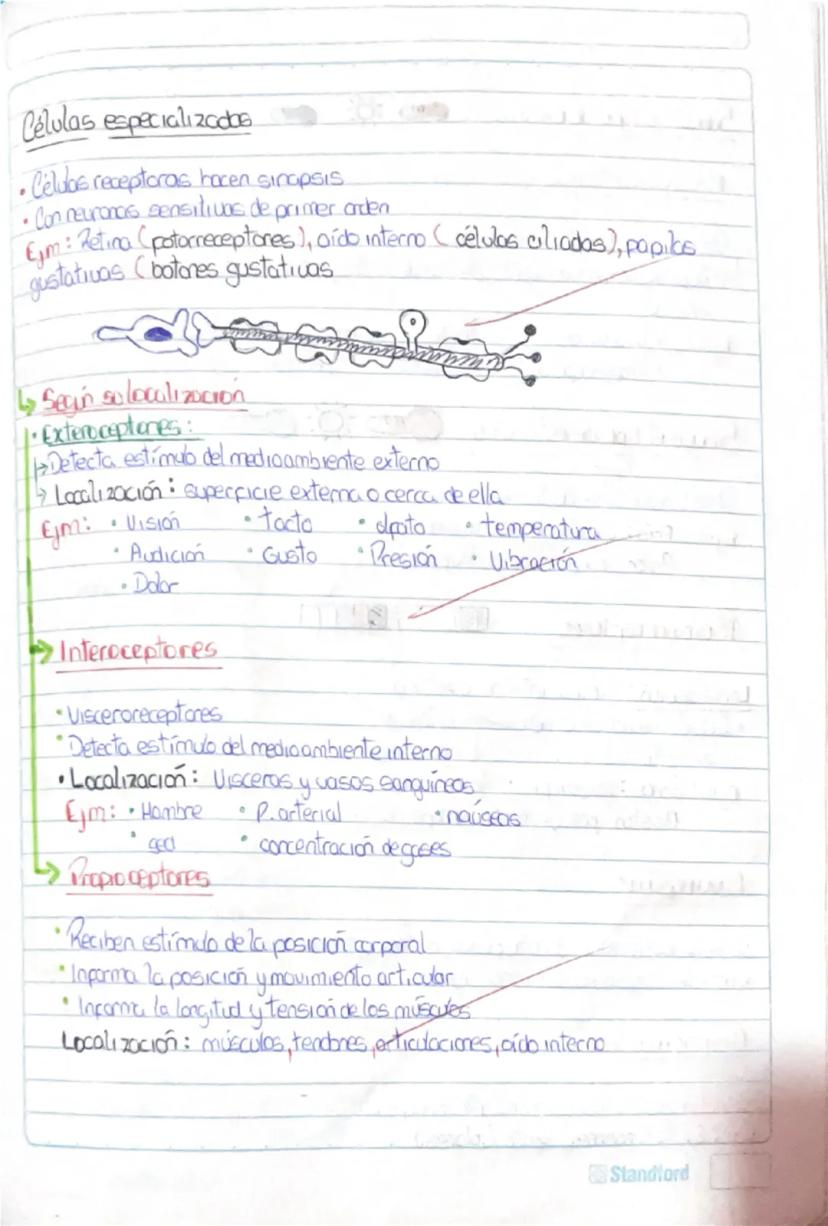 Células especializadas
• Células receptoras hacen sinapsis
• Con neuronas sensitivas de primer orden
Ejm: Retina (fotorreceptores), oído interno (células ciliadas), papilas
gustativas (botones gustativas
↳ Según su localización
• Exteroceptores:
→ Detecta estímulo del medio ambiente externo
→ Localización: superficie externa o cerca de ella
Ejm: • Visión • tacto • olfato • temperatura
• Audición • Gusto • Presión • Vibración
• Dolor
→ Interoceptores
• Visceroreceptores
• Detecta estímulo del medio ambiente interno
• Localización: Visceras y vasos sanguíneos
Ejm: • Hambre • P. arterial • naúseas
• sed • concentración de gases
→ Propioceptores
• Reciben estímulo de la posición corporal
• Informa la posición y movimiento articular
• Informa la longitud y tensión de los
Localización: músculos, tendones, articulaciones, oído interno
Standford